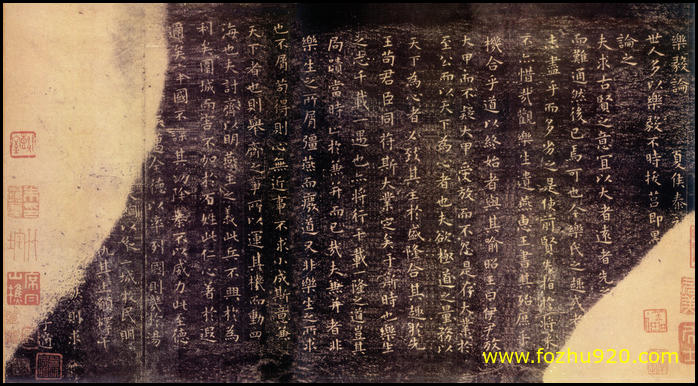 樂毅論 夏侯泰
世人多以樂毅不時拔莒即墨
論之
夫求古賢之意宜以大者遠者先
而難通然後已焉可也今樂氏之趣或
未盡乎而多劣之是使前賢失指於將來
不亦惜哉觀樂生遺燕惠王書其殆庶乎
機合乎道以終始者與其喻昭王曰伊尹放
大甲而不疑大甲受放而不怨是存大業於
至公而以天下為心者也夫欲極道之量務以
天下為心者必致其主於盛隆合其趣於先
王苟君臣同符斯大業定矣于斯時也樂生
之志千載一遇也亦將行千載一隆之道豈其
局蹟當時止於兼并而已哉夫兼并者非
樂生之所屑彊燕而廢道又非樂生之所求
也不屑苟得則心無近事不求小成斯意兼
天下者也則舉齊之事所以運其機而動四
海也夫討齊以明燕主之義此兵不興於為
利矣圍城而害不加於百姓此仁心著於遐
邇矣舉國不謀其功除暴不以威力此至德
全德以率列國則幾於湯
www.fozhu920.com